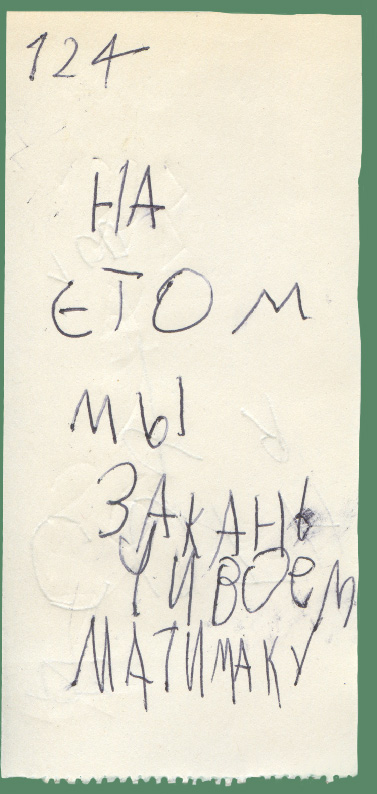 124
НА
ЄТОМ
МЫ
ЗАКАНЬ
ЧИВОЕМ
МАТИМАКУ